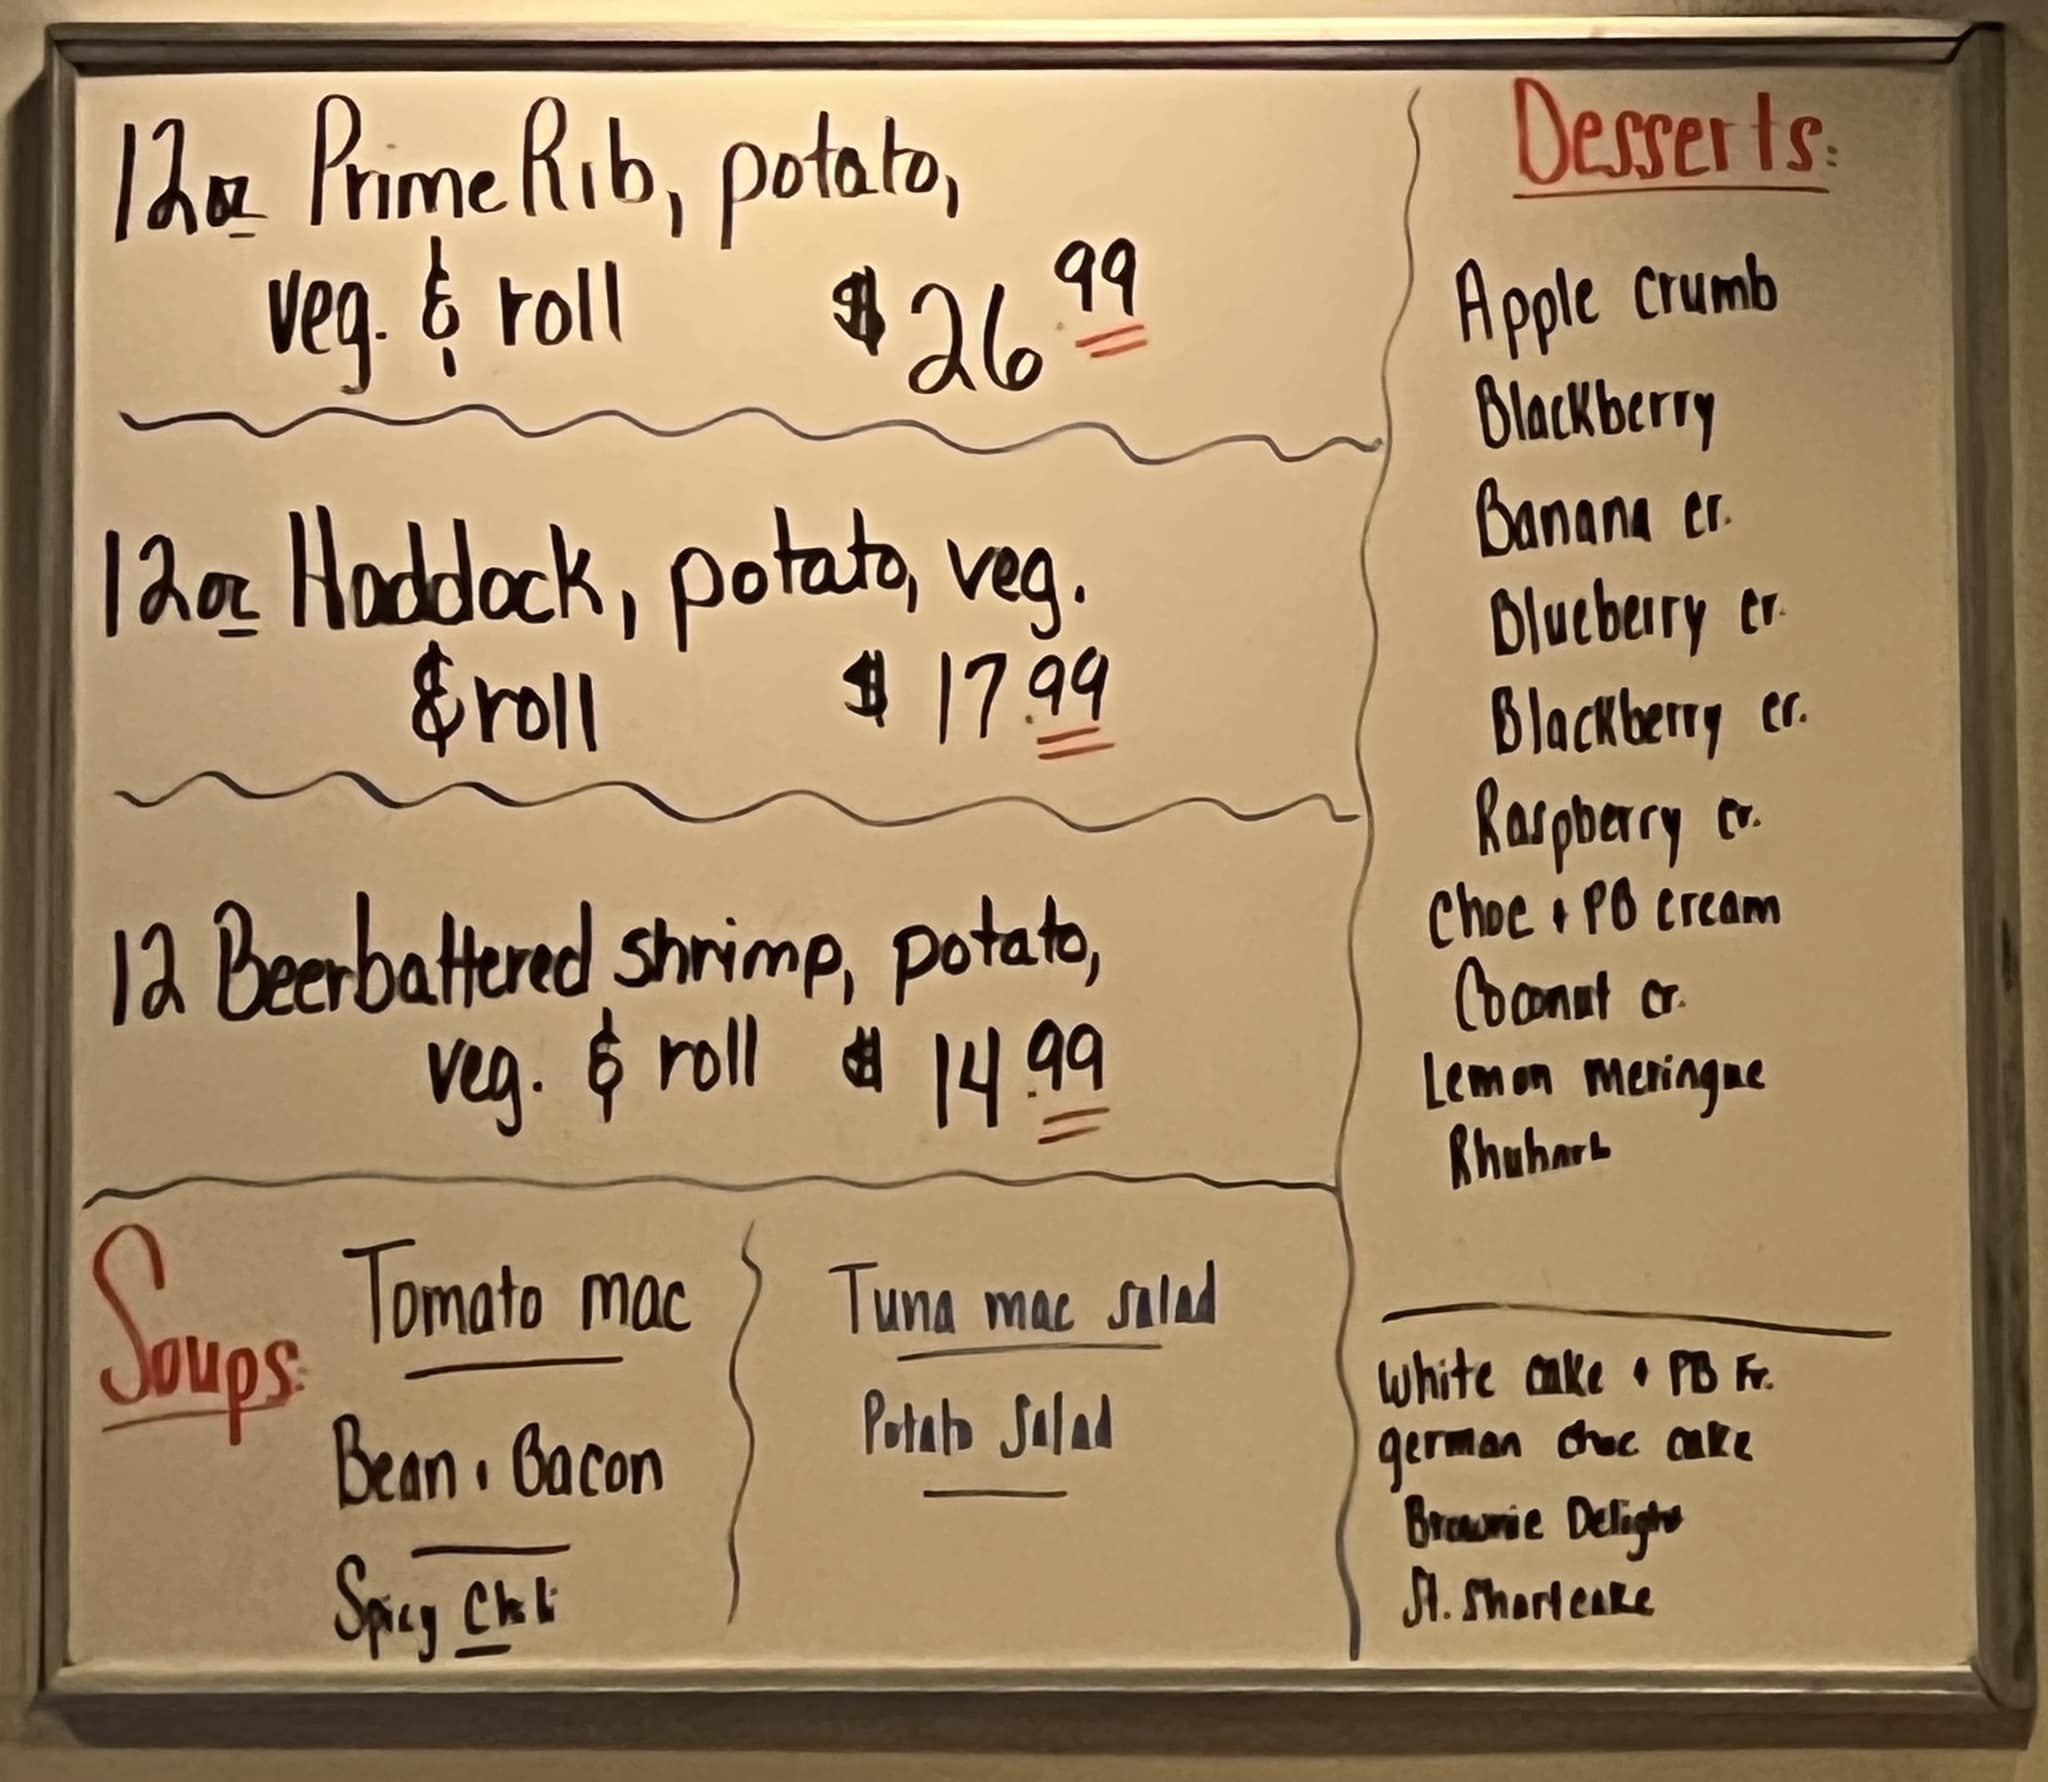 12oz Prime Rib, potato,
veg. & roll $26.99
12oz Haddock, potato, veg.
& roll $17.99
12 Beerbattered shrimp, potato,
veg. & roll $14.99
Soups:
Tomato mac
Bean + Bacon
Spicy Chili
Tuna mac salad
Potato Salad
Desserts:
Apple crumb
Blackberry
Banana cr.
Blueberry cr.
Blackberry cr.
Raspberry cr.
Choc + PB cream
Coconut cr.
Lemon meringue
Rhubarb
White cake + PB Fr.
german choc cake
Brownie Delight
St. Shortcake